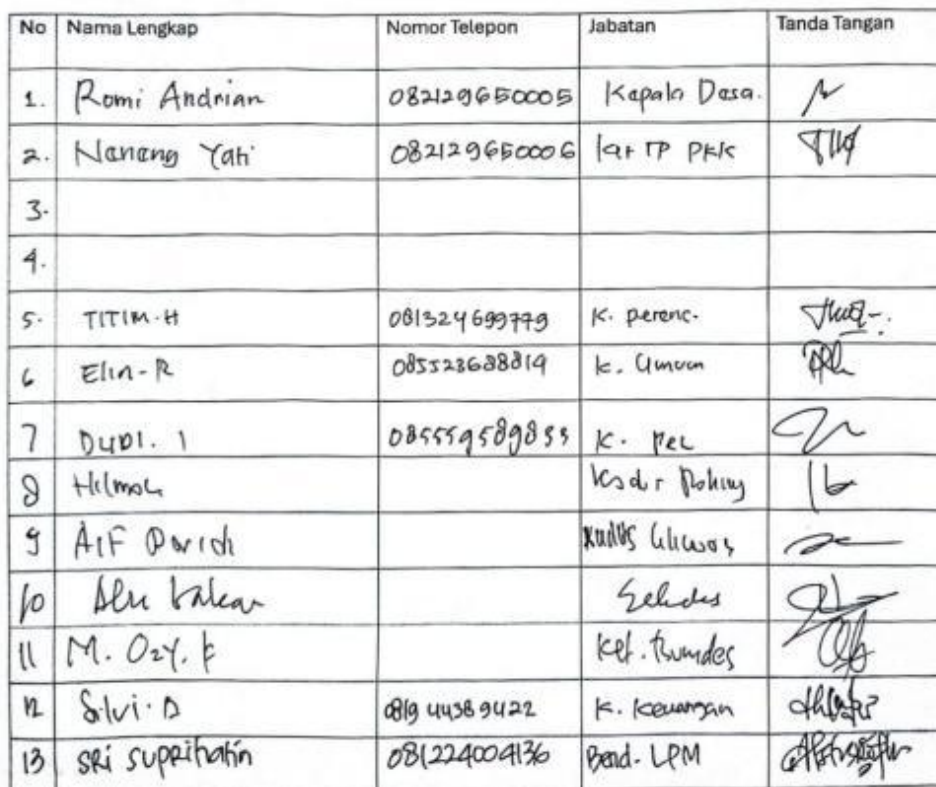 No Nama Lengkap Nomor Telepon Jabatan Tanda Tangan
1. Romi Andrian 082129650005 Kepala Desa.
2. Nanang Yati 082129650006 TP PKK
3.
4.
5. TITIM.H 081324699779 K. perenc.
6 Elin-R 085523688819 K. Umum
7 DUDI. I K. Pel
8 Kadus
9 AIF Kadus
10 Sekdes
11 M. Ozy. F Ket. Bumdes
12 Silvi.D 0819 44389422 K. Keuangan
13 SRI SUPRIHATIN 081224004136 Bend. LPM